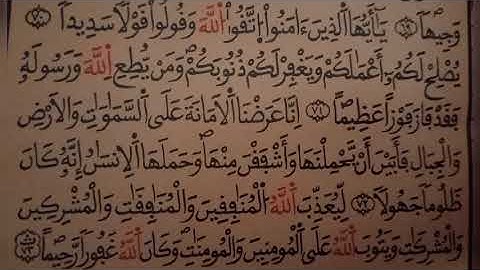 وَجِيهًا ۝٦٩ يَٰٓأَيُّهَا ٱلَّذِينَ ءَامَنُوا۟ ٱتَّقُوا۟ ٱللَّهَ وَقُولُوا۟ قَوْلًا سَدِيدًا ۝٧٠
يُصْلِحْ لَكُمْ أَعْمَٰلَكُمْ وَيَغْفِرْ لَكُمْ ذُنُوبَكُمْ وَمَن يُطِعِ ٱللَّهَ وَرَسُولَهُۥ
فَقَدْ فَازَ فَوْزًا عَظِيمًا ۝٧١ إِنَّا عَرَضْنَا ٱلْأَمَانَةَ عَلَى ٱلسَّمَٰوَٰتِ وَٱلْأَرْضِ
وَٱلْجِبَالِ فَأَبَيْنَ أَن يَحْمِلْنَهَا وَأَشْفَقْنَ مِنْهَا وَحَمَلَهَا ٱلْإِنسَٰنُ إِنَّهُۥ كَانَ
ظَلُومًا جَهُولًا ۝٧٢ لِّيُعَذِّبَ ٱللَّهُ ٱلْمُنَٰفِقِينَ وَٱلْمُنَٰفِقَٰتِ وَٱلْمُشْرِكِينَ
وَٱلْمُشْرِكَٰتِ وَيَتُوبَ ٱللَّهُ عَلَى ٱلْمُؤْمِنِينَ وَٱلْمُؤْمِنَٰتِ وَكَانَ ٱللَّهُ غَفُورًا رَّحِيمًا ۝٧٣